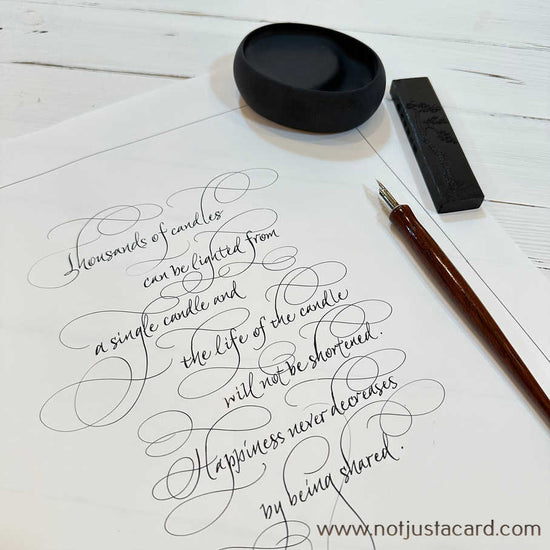 Thousands of candles
can be lighted from
a single candle and
the life of the candle
will not be shortened.
Happiness never decreases
by being shared.
www.notjustacard.com